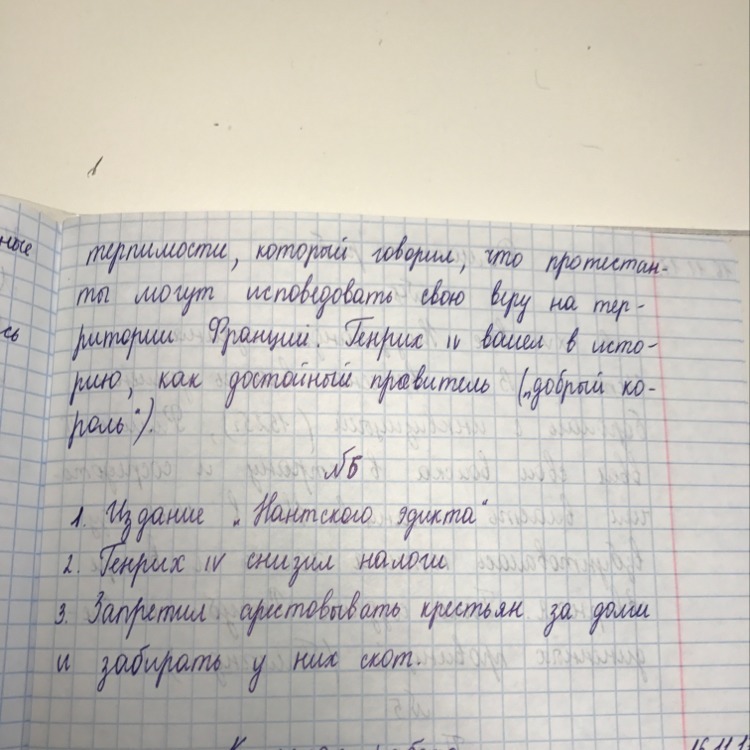 ные
терпимости, который говорил, что протестан-
ты могут исповедовать свою веру на тер-
сь
ритории Франций. Генрих IV вошел в исто-
рию, как достойный правитель („добрый ко-
роль“).
№6
1. Издание „Нантского эдикта“
2. Генрих IV снизил налоги
3. Запретил арестовывать крестьян за долги
и забирать у них скот.